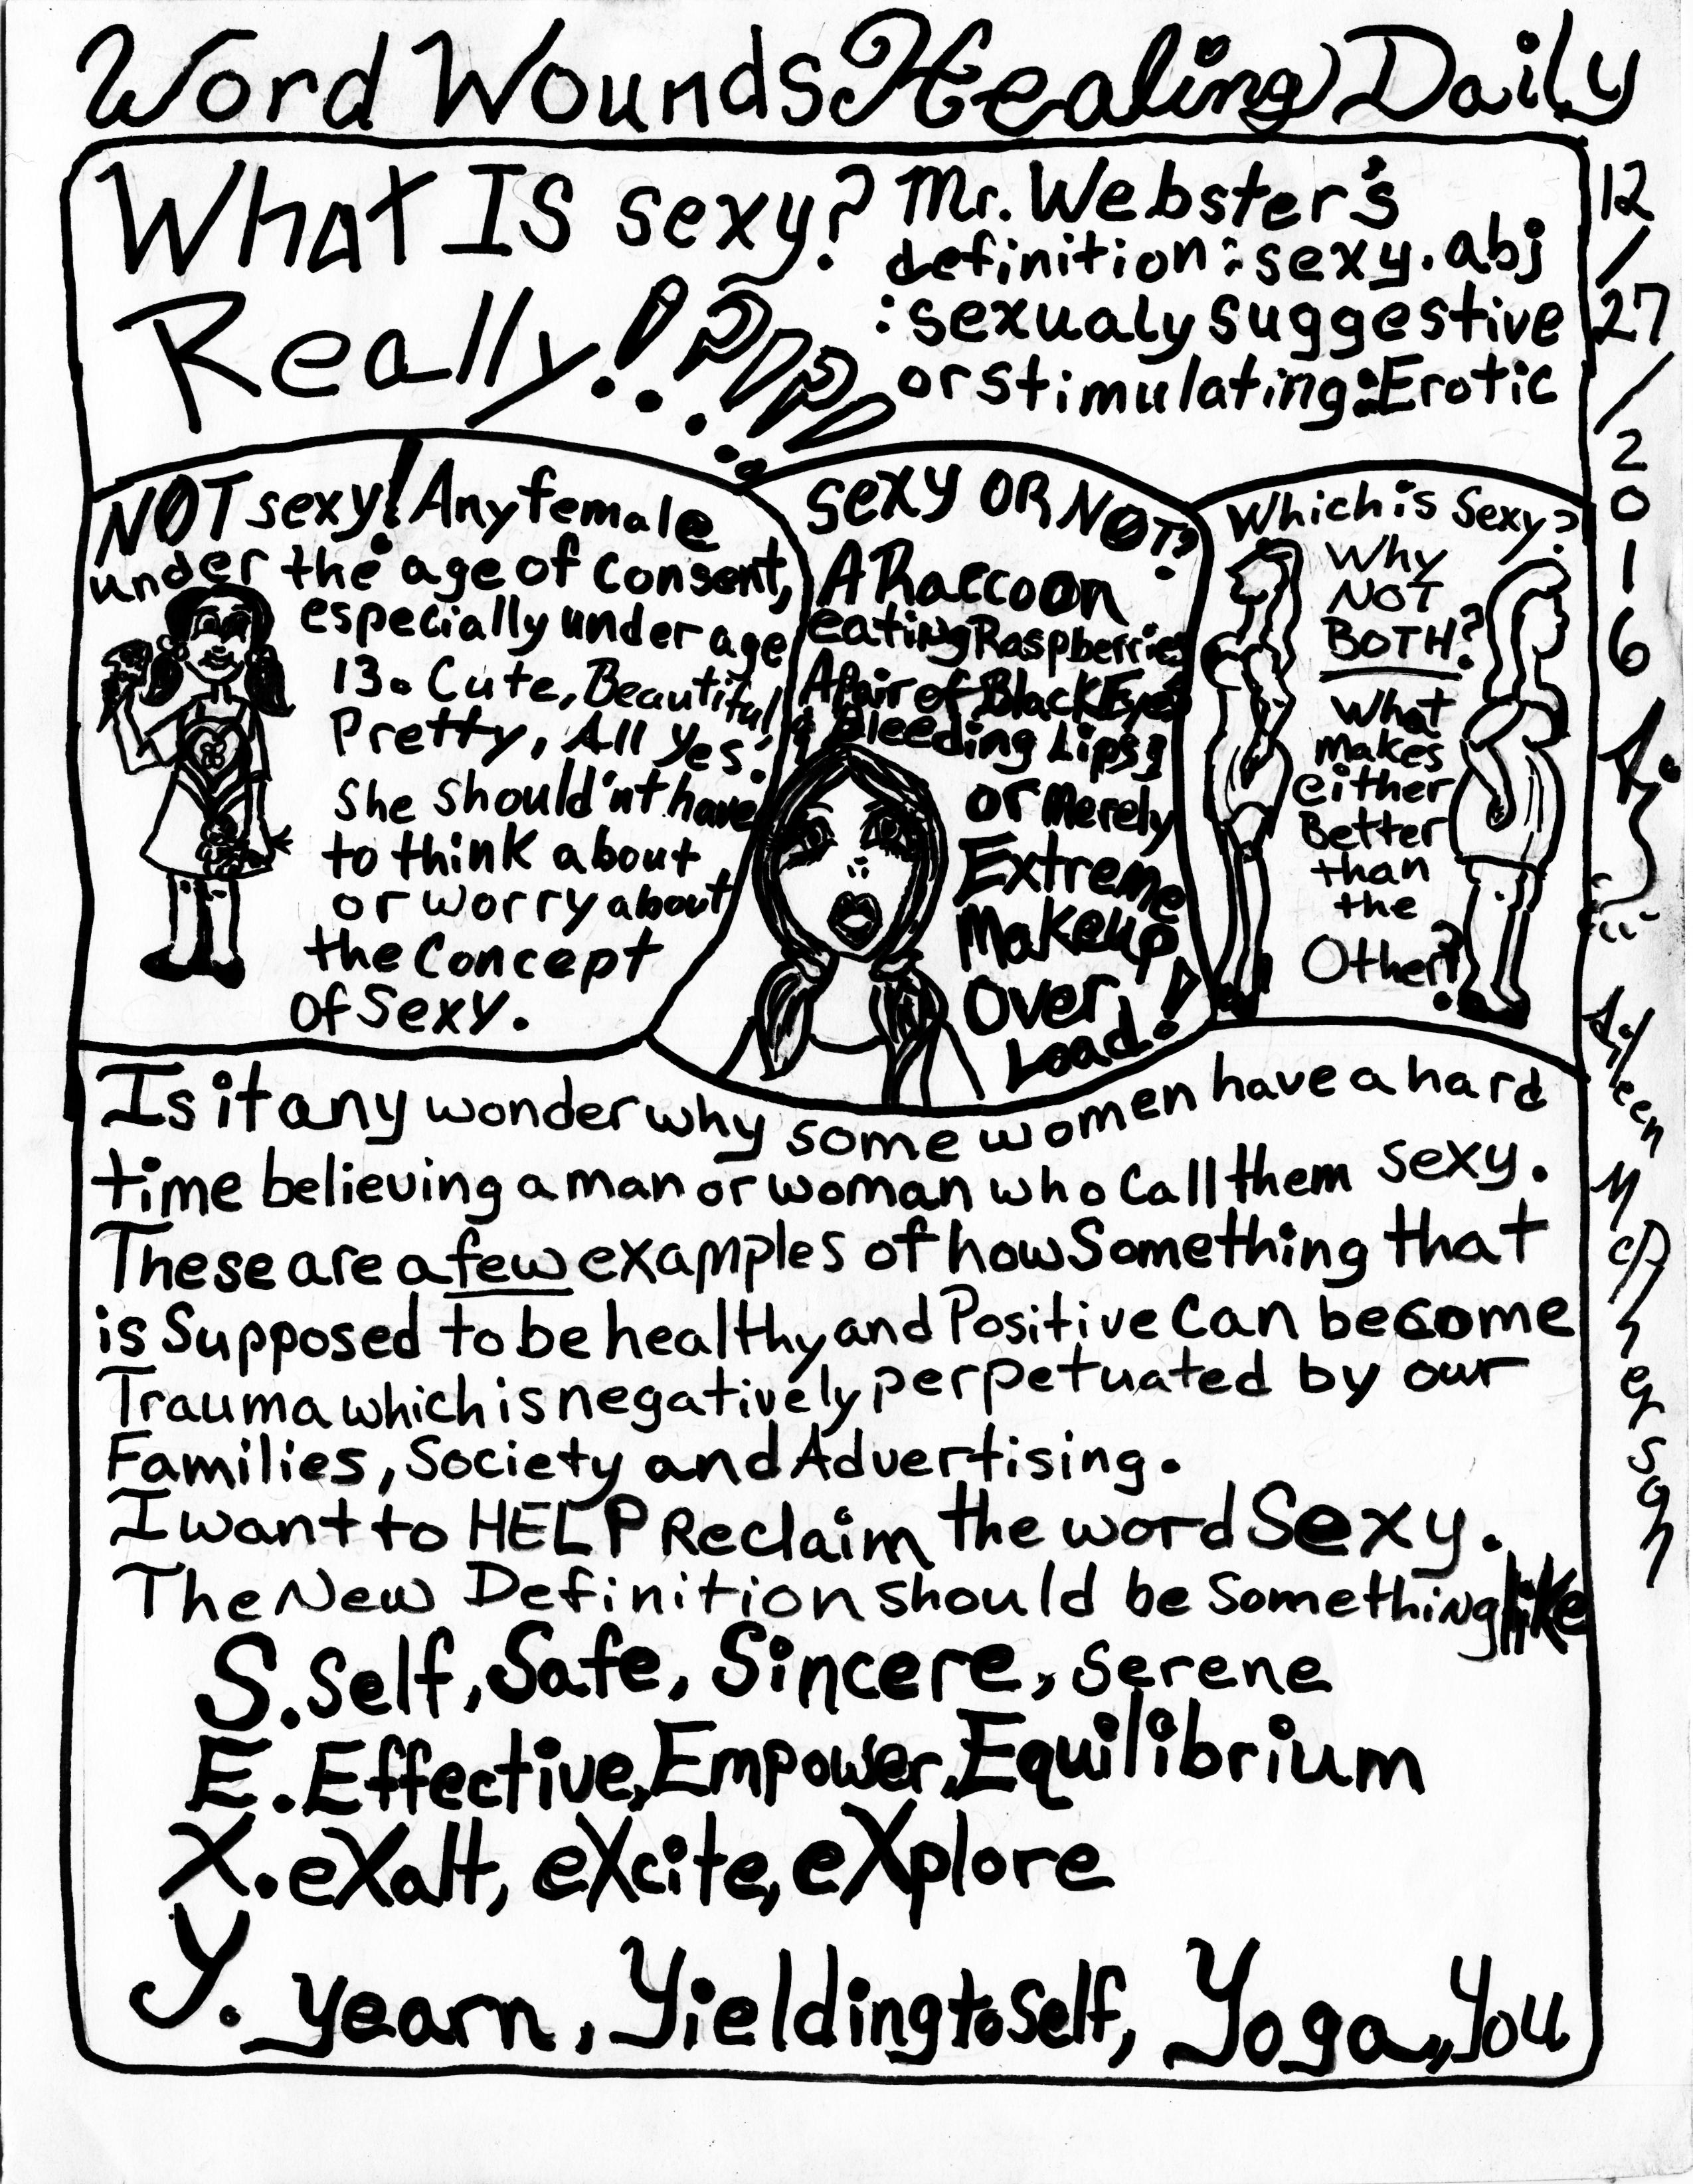 Word Wounds Healing Daily
What Is sexy?
Really!???
Mr. Webster's
definition: sexy. abj
: sexualy suggestive
or stimulating: Erotic
NOT sexy! Any female
under the age of consent,
especially under age
13. Cute, Beautiful
Pretty, All yes!
She should'nt have
to think about
or worry about
the Concept
of Sexy.
Sexy OR NOT?
A Raccoon
eating Raspberries
A pair of Black Eyes
& Bleeding Lips,
or Merely
Extreme
Makeup
Over
Load!
Which is Sexy?
Why
NOT
BOTH?
What
makes
either
Better
than
the
Other?
Is it any wonder why some women have a hard
time believing a man or woman who call them sexy.
These are a few examples of how Something that
is Supposed to be healthy and Positive Can become
Trauma which is negatively perpetuated by our
Families, Society and Advertising.
I want to HELP Reclaim the word Sexy.
The New Definition should be Something like
S. Self, Safe, Sincere, serene
E. Effective, Empower, Equilibrium
X. eXalt, eXcite, eXplore
Y. yearn, Yielding to self, Yoga, You
12/27/2016